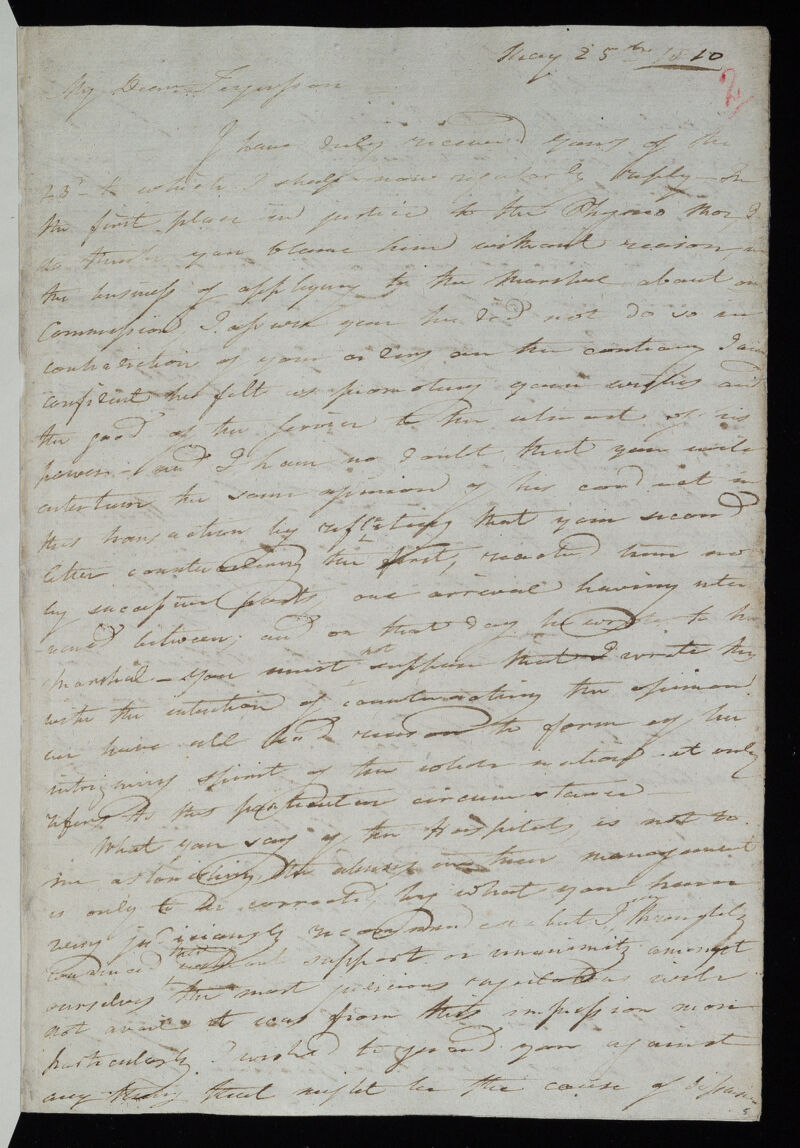 May 25th 1810
2
My Dear Fergusson
I have duly received yours of the
23d to which I shall now regularly reply - In
the first place in justice to the Physico Mor, I
do think you blame him without reason, in
the business of applying to the Marshal about our
Commissions, I assure you he did not do so in
contradiction of your orders on the contrary I am
confident he felt as promoting your wishes and
the good of the service to the utmost of his
power - and I have no doubt that you will
entertain the same opinion of his conduct in
this transaction by reflecting that your second
letter countermanding the first, reached him not
by successive posts, our arrival having inter
vened between; and on that day he wrote to the
Marshal - You must not suppose that I wrote this
with the intention of counteracting the opinion
we have all had reason to form of the
intriguing spirit of the whole nation - it only
refers to this particular circumstance -
What you say of the Hospitals, is not to
me astonishing, the abuses in their management
is only to be corrected, by what you have
very judiciously recommended but I am throughly
convinced that without support or unanimity amongst
ourselves the most judicious regulations will
not avail - it was from this impression more
particularly I wished to guard you against
any thing that might be the cause of
5